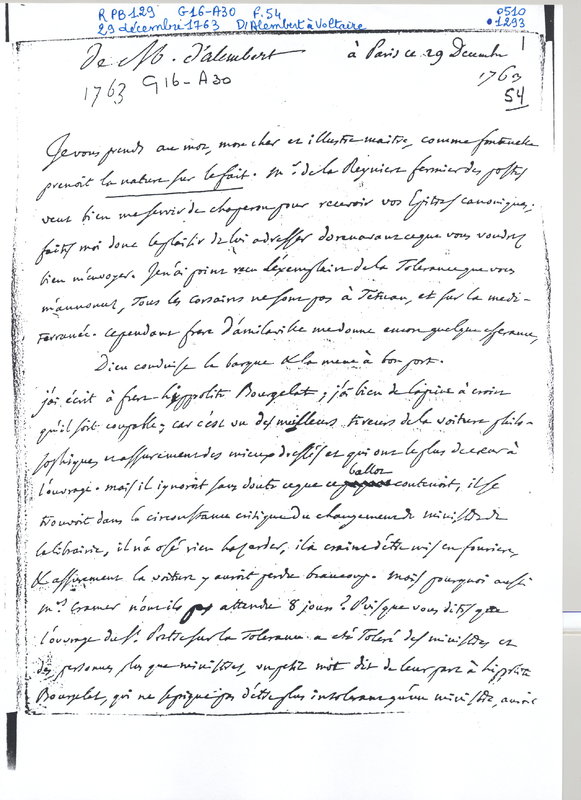 RPB129 G16-A30 F.54 0510
29 décembre 1763 D'Alembert à Voltaire 1293
de M. d'alembert à Paris ce 29 Decembre 1
1763 G16-A30 1763
54
Je vous prends au mot, mon cher et illustre maitre, comme fontenelle
prenoit la nature sur le fait. Mr. de la Reyniere fermier des postes
veut bien me servir de chaperon pour recevoir vos Epitres canoniques;
faites moi donc le plaisir de lui adresser dorenavant ce que vous voudrez
bien m'envoyer. Je n'ai point recu l'exemplaire de la Tolerance que vous
m'annoncez, tous les corsaires ne sont pas à Tetuan, et sur la medi-
terranée. cependant frere d'amilaville me donne encore quelque esperance,
Dieu conduise la barque & la mene à bon port.
j'ai ecrit à frere hippolite Bourgelat; j'ai bien de la peine à croire
qu'il soit coupable; car c'est un des meilleurs tireurs de la voiture philo-
sophique, et assurement des mieux dressés et qui ont le plus de cœur à
l'ouvrage. mais il ignoroit sans doute ce que ce ballot contenoit, il se
trouvoit dans la circonstance critique du changement de ministre de
la librairie, il n'a osé rien hasarder, il a craint d'être mis en fourriere,
& assurement la voiture y auroit perdu beaucoup. Mais pourquoi aussi
Mrs. Cramer n'ont ils pas attendu 8 jours? Puisque vous dites que
l'ouvrage du St. Prêtre sur la Tolerance a eté toleré des ministres et
des personnes plus que ministres, un petit mot dit de leur part à hippolite
Bourgelat, qui ne se pique pas d'être plus intolerant qu'un ministre, auroit